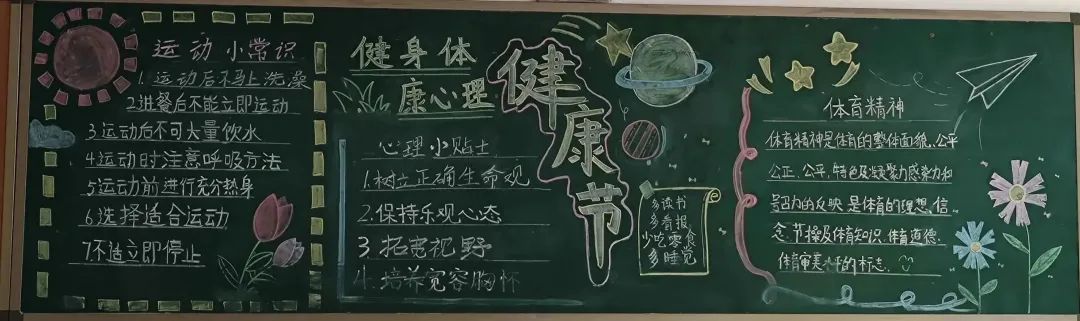 运动小常识
1.运动后不马上洗澡
2进餐后不能立即运动
3.运动后不可大量饮水
4运动时注意呼吸方法
5运动前进行充分热身
6选择适合运动
7不适立即停止
健身体
康心理
心理小贴士
1.树立正确生命观
2.保持乐观心态
3.拓宽视野
4.培养宽容胸怀
健康节
多读书
多看报
少吃零食
多睡觉
体育精神
体育精神是体育的整体面貌、公平
公正,公平,特色及凝聚力感染力和
号召力的反映是体育的理想、信
念、节操及体育知识、体育道德、
体育审美水平的标志.